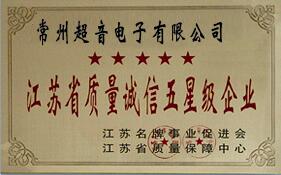 常州超音电子有限公司
★★★★★
江苏省质量诚信五星级企业
江苏名牌事业促进会
江苏省质量保障中心